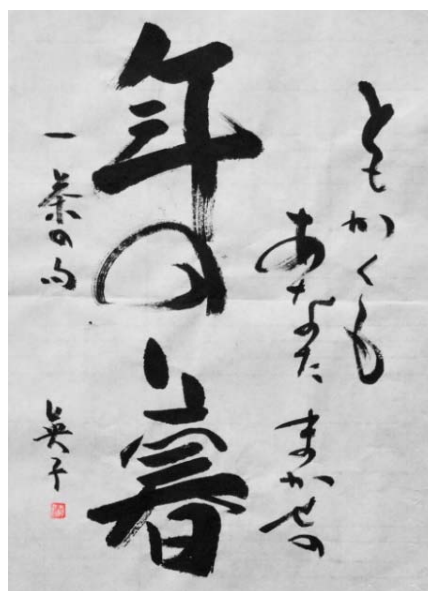 ともかくも
あなたまかせの
年の暮
一茶の句
英子